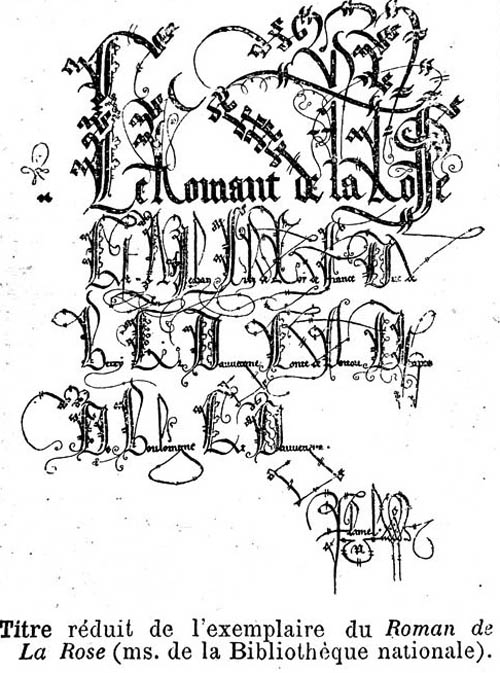 Le Romant de la Rose
Est a Jehan filz de Roy de France Duc de
Berry Et Dauvergne Conte de Poitou
De Bouloingne Et Dauvergne.
Flamel
Titre réduit de l'exemplaire du Roman de
La Rose (ms. de la Bibliothèque nationale).